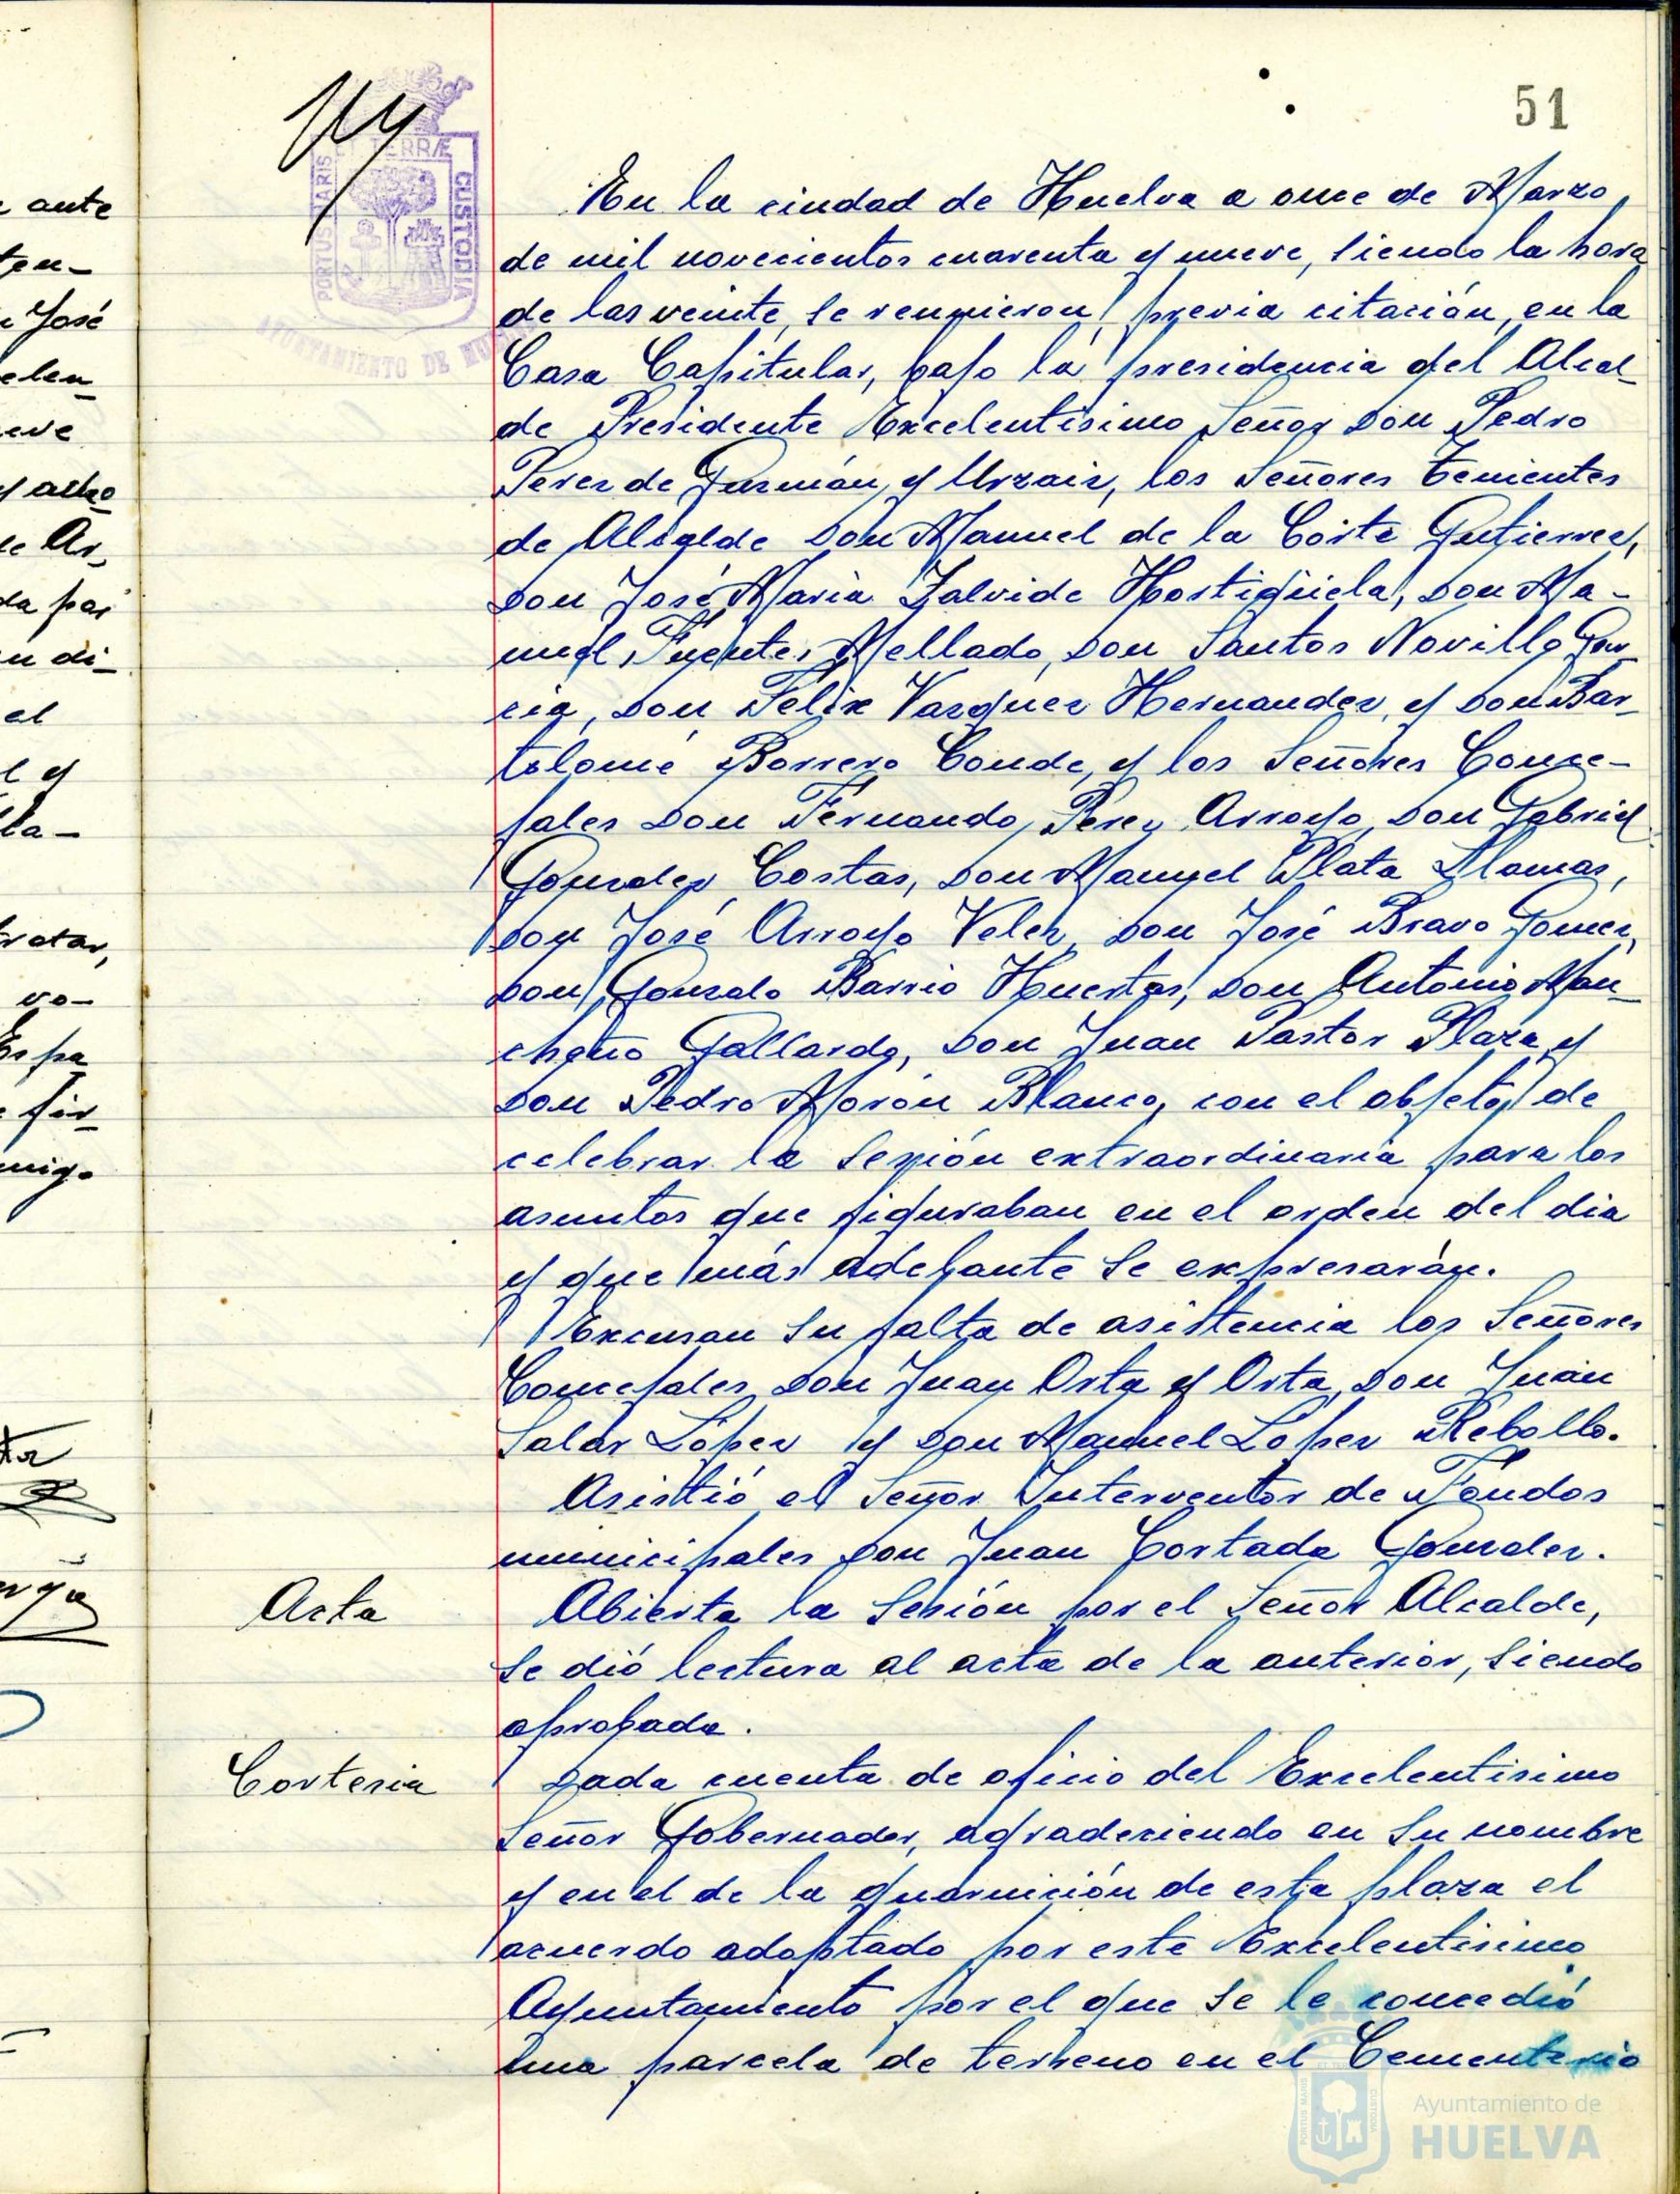 51
PORTUS MARIS ET TERRÆ CUSTODIA
AYUNTAMIENTO DE HUELVA
En la ciudad de Huelva a once de Marzo
de mil novecientos cuarenta y nueve, siendo la hora
de las veinte, se reunieron, previa citación, en la
Casa Capitular, bajo la presidencia del Alcal-
de Presidente Excelentisimo Señor Don Pedro
Perez de Guzmán y Urzaiz, los Señores Tenientes
de Alcalde Don Manuel de la Corte Gutierrez,
Don José Maria Zalvide Hostigüela, Don Ma-
nuel Fuentes Mellado, Don Santos Novillo Gar-
cia, Don Felix Vazquez Hernandez, y Don Bar-
tolomé Borrero Conde, y los Señores Conce-
jales Don Fernando Perez Arroyo, Don Gabriel
Gonzalez Costas, Don Manuel Plata Llamas,
Don José Arroyo Velez, Don José Bravo Gomez,
Don Gonzalo Barrio Huertas, Don Antonio Man-
cheño Gallardo, Don Juan Pastor Plaza y
Don Pedro Morón Blanco, con el objeto de
celebrar la sesión extraordinaria para los
asuntos que figuraban en el orden del dia
y que más adelante se expresarán.
Excusan su falta de asistencia los Señores
Concejales Don Juan Orta y Orta, Don Juan
Salar López y Don Manuel Lopez Rebollo.
Asistió el Señor Interventor de Fondos
municipales Don Juan Cortada Gonzalez.
Acta
Abierta la Sesión por el Señor Alcalde,
se dió lectura al acta de la anterior, siendo
aprobada.
Cortesia
Dada cuenta de oficio del Excelentisimo
Señor Gobernador, agradeciendo en su nombre
y en el de la guarnición de esta plaza el
acuerdo adoptado por este Excelentisimo
Ayuntamiento por el que se le concedió
una parcela de terreno en el Cementerio
Ayuntamiento de
HUELVA